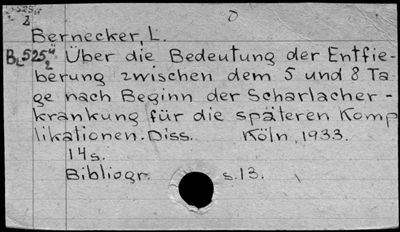 Bernecker, L.
Über die Bedeutung der Entfie-
berung zwischen dem 5 und 8 Ta-
ge nach Beginn der Scharlacher-
krankung für die späteren Komp
likationen. Diss. Köln, 1933.
14s.
Bibliogr. s.13.